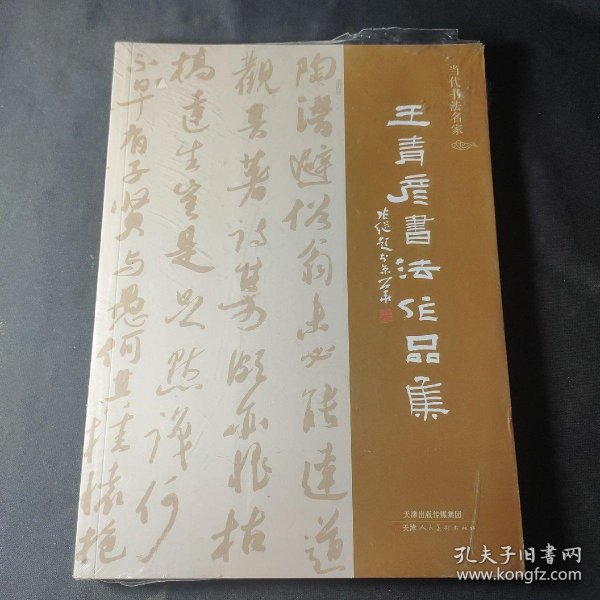 当代书法名家
王青彦書法作品集
陶潜避俗翁未必能達道
觀其著诗集颇亦恨枯
槁達生豈是足默識
不早有子贤与愚何其挂懷抱
天津出版传媒集团
天津人民美术出版社
孔夫子旧書网
www.kongfz.com